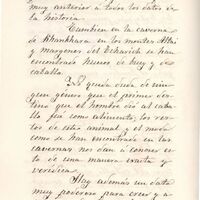 muy anterior á todos los datos de
la historia.
Tambien en la caverna
de Khankhara en los montes Altai
y margenes del Tcharich se han
encontrado huesos de buey y de
caballo.
No queda duda de nin-
gun género que el primer des-
tino que el hombre dió al caba-
llo fue como alimento; los res-
tos de este animal y el modo
como se han encontrado en las
cavernas nos dan á conocer es-
to de una manera exacta y
verídica.
Hay además un dato
muy poderoso para creer y a-